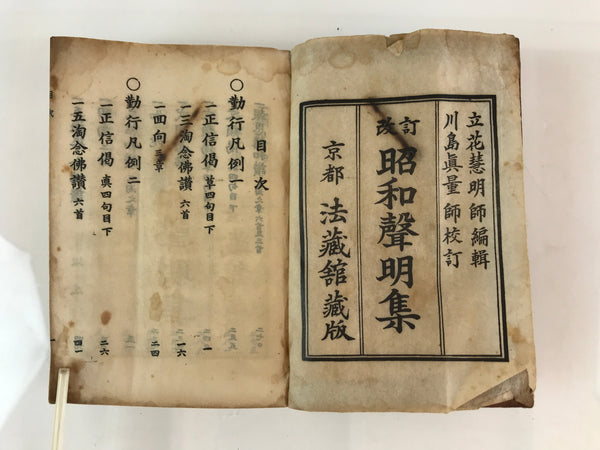 立花慧明師編輯
川島眞量師校訂
改訂
昭和聲明集
京都 法藏舘藏版
目次
○勤行凡例一
一正信偈 草四句目下 一
一三淘念佛讚 六首 一六
一四向 三章 二四
○勤行凡例二
一正信偈 眞四句目下 二六
一五淘念佛讚 六首 四一
目次
一